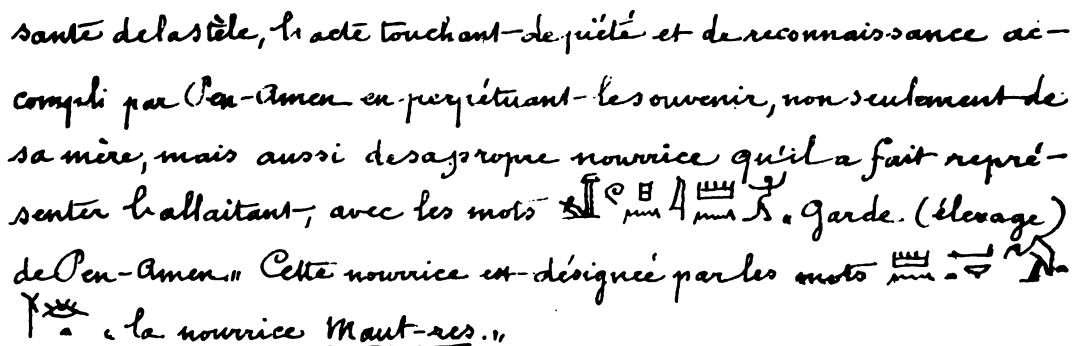 sante de la stèle, l'acte touchant de piété et de reconnaissance ac-
compli par Pen-Amen en perpétuant le souvenir, non seulement de
sa mère, mais aussi de sa propre nourrice qu'il a fait repré-
senter l'allaitant, avec les mots « Garde (élevage)
de Pen-Amen » Cette nourrice est désignée par les mots
« la nourrice Maut-res. »